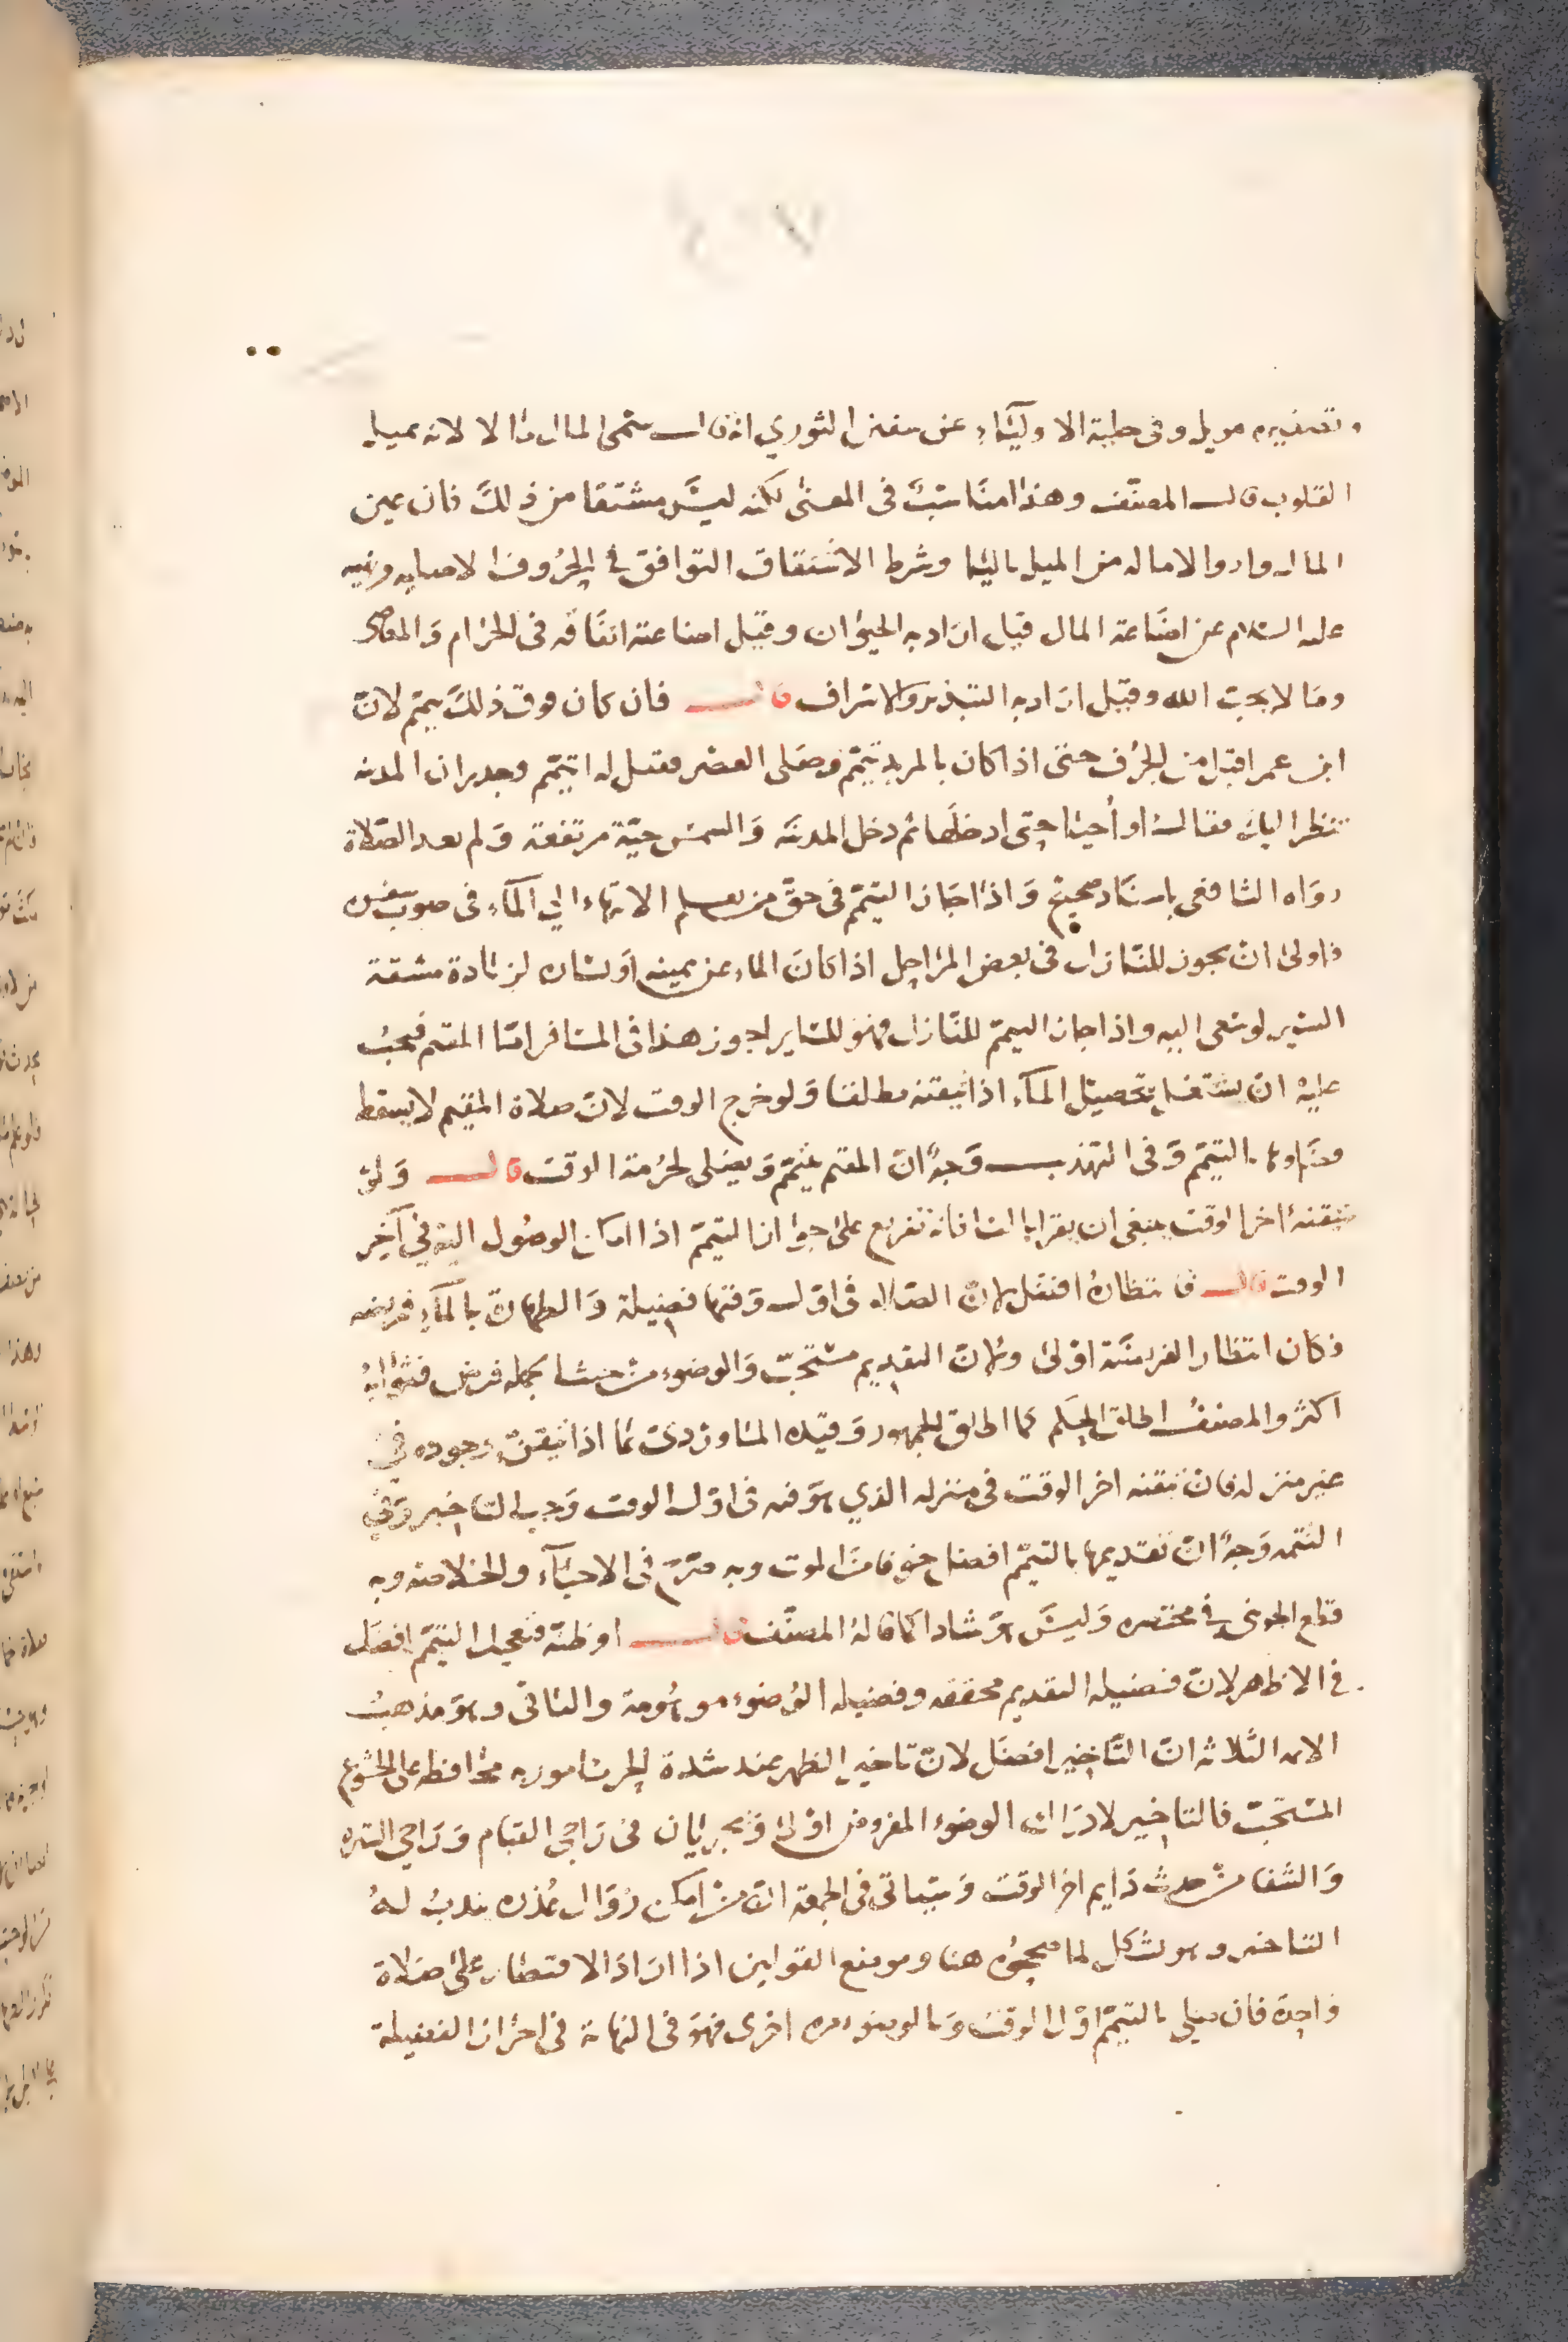 وتصغيره مويل وفى حلية الاوليَاءِ عن سفين الثوري انه قال سمى المال مالا لانه يميل
القلوب قال المصنف وهذا مناسبٌ فى المعنى لكنه ليسَ مشتقا من ذلك فان عين
المال واو والامالة من الميل باليا وشرط الاشتقاق التوافق في الحرُوف الاصليه ونهيه
عليه السلام عن اضَاعة المال قيل ارَاد به الحيوان وقيل اضاعته انفَاقه فى الحرَام وَالمعاصى
ومَا لا يحب الله وقيل ارَاد به التبذير والاسراف قال فان كان فوق ذلك تيمّم لانّ
ابن عمر اقبل من الجرُف حتى اذا كان بالمربد تيمّم وصَلى العصْر فقيل له اتيمّم وجدران المدينه
تنظر اليك فقال او أحيا حتى ادخلَها ثم دخل المدينَه وَالشمس حيّة مرتفعة وَلم يعد الصّلاة
روَاه الشافعى باسنَاد صحيح وَاذا جَاز التيمّم فى حقّ من يعلم الانتهاء الي الماءِ فى صوب سفره
فاولى انْ يجوز للنازل فى بعض المرَاحل اذا كانَ الماء عن يمينه اوْ يسَاره لزيَادة مشقة
السّير لو سَعى اليه واذا جاز التيمم للنّازل فهوَ للسَاير اجوز هذا فى المسَافر امّا المقيم فيجبُ
عليْه انْ يشتغل بتحصيْل الماءِ اذا تيقنه مطلقا وَلو خرج الوقت لانّ صلاة المقيم لا يسقط
فرضها بالتيمّم وَفى التهذيب وَجهٌ انّ المقيم يتيمّم وَيصَلى لحرُمة الوقت قال وَلوْ
تيقنهُ اخر الوقت ينبغى ان يقرا بالتا فانه تفريع على جوَاز التيمّم اذا امكن الوصُول اليْه في آخِر
الوقت قال فانتظارهُ افضل لانّ الصلاة فى اوّل وَقتها فضيلة وَالطهارة بالماءِ فريضه
فكان انتظار الفريضَة اوْلى ولانّ التقديم مستحَبّ وَالوضوء منْ حيث الجمله فرض فثوابهُ
اكثر والمصنفُ اطلق الحكم كما اطلق الجمهور وَقيّده الماوردىّ بما اذا تيقنَ وجوده في
غير منزله فان تيقنه اخر الوقت فى منزله الذي هوَ فيه فى اوّل الوقت وَجب التاخير وَفى
التتمه وَجهٌ انّ تقديمها بالتيمّم افضل خوفا منَ الموت وبه صَرّحَ فى الاحيَآء والخلاصه وبه
قطع الجوينى في مختصره وَليسَ هوَ شاذا كما قالهُ المصنّف قال اوْ ظنّه فتعجيل التيمّم افضَل
في الاظهر لانّ فضيله التقديم محققه وفضيله الوُضوء موهُومة والثانى وهوَ مذهبُ
الائمه الثلاثه انّ التّاخيْر افضَل لانّ تاخيْر الظهر عند شدة الحر مامور به محَافظه على الخشُوع
المستحَبّ فالتاخير لادرَاك الوضوء المفروض اوْلى وَيجريَان فى رَاجى القيَام وَرَاجى الستره
وَالشفا منْ حدث دَايم اخر الوقت وَسَياتى فى الجمعَة انّ منْ امكن زوَال عُذره يندبُ لهُ
التاخير وهو يشكل لما صححُوه هنا وموضع القولين اذا ارَادَ الاقتصَار على صَلاة
وَاحِدة فان صلى بالتيمّم اوّل الوقت وَبالوضوء مره اخرى فهوَ فى النهاية فى احرَاز الفضيلة